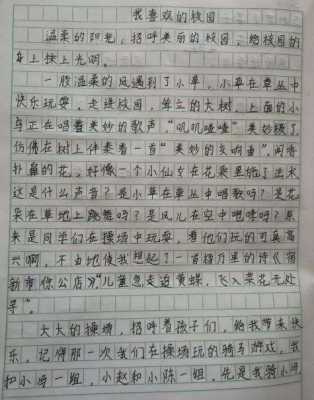 我喜欢的校园
温柔的阳光，招呼美丽的校园，给校园的
身上披上光明。
一股温柔的风遇到了小草，小草在草丛中
快乐玩耍，走进校园，的大树，上面的小
鸟正在唱着美妙的歌声，“叽叽喳喳”美妙极了
仿佛在树上伴奏着一首“美妙的交响曲”，闻香
扑鼻的花，好像一个小仙女在花朵里钻了出来，
这是什么声音？是小草在草丛中唱歌吗？是花
朵在草地上跳舞吗？是风儿在空中吗？原
来是同学们在操场中玩耍，看他们玩的可真高
兴啊，不由地使我想起了一首杨万里的诗《宿
新市徐公店》“儿童急走追黄蝶，飞入菜花无处
寻”。
大大的操场，招呼着孩子们，给我带来快
乐，记得那一次我们在操场玩的骑马游戏，我
和小一组，小赵和小陈一组，先是我骑小